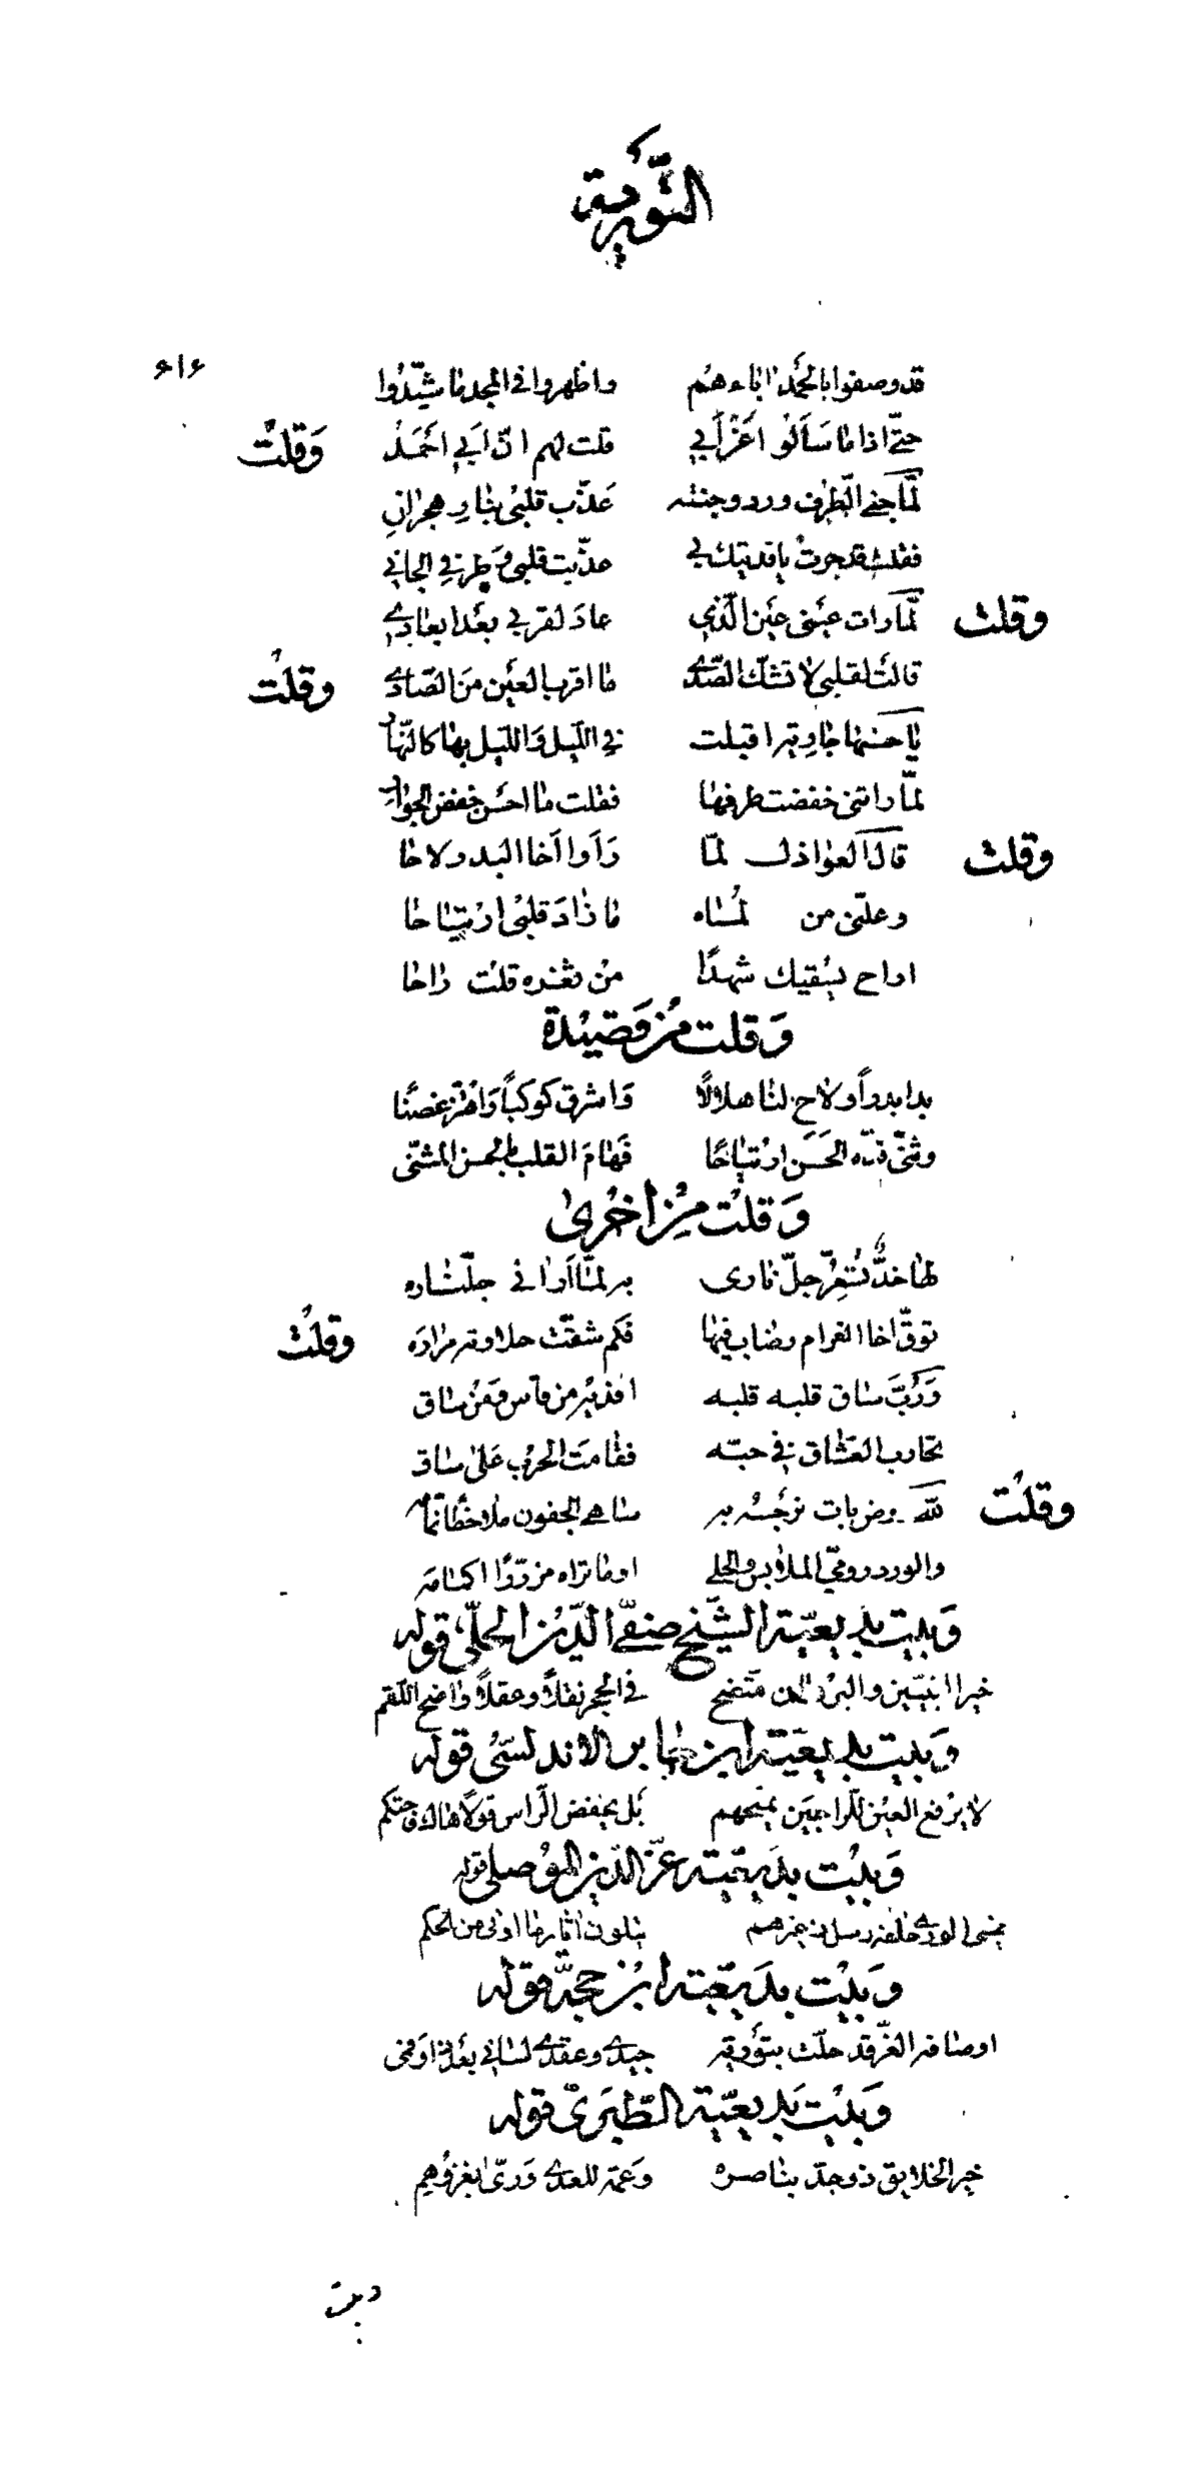 التّورية
٤١٤
قد وصفوا بالحمد اباءهم واظهروا في المجد ما شيّدوا
حتّى اذا ما سألوا عن أبي قلت لهم انّ ابي احمد وقلت
لمّا جنى الطرف ورد وجنته عذّب قلبي بنار هجراني
فقلت قد جرت يا فديتك لي عذّبت قلبي وطرفي الجاني
وقلت لمّا رأت عيني عين الّذي عاد لقربي بعد ابعادي
قالت لقلبي لا تشك الصّدى ما اقرب العين من الصّادي وقلت
يا حسنها جارية اقبلت في الليل والليل بها كالنّهار
لمّا راتني خفضت طرفها فقلت ما احسن خفض الجوار
وقلت قال العواذل لمّا رأوا أخا البدر لاحا
وعلّني من لماه ما زاد قلبي ارتياحا
اراح يسقيك شهدًا من ثغره قلت راحا
وقلت من قصيدة
بدا بدراً ولاح لنا هلالًا واشرق كوكباً واهتز غصنًا
وثنّى قدّه الحسن ارتياحًا فهام القلب بالحسن المثنّى
وقلت من أخرى
لها خدٌّ تسعّر جلّ ناري به لمّا أراني جلّناره
توقّ اخا الغرام رضاب فيها فكم شقّت حلاوته مراره وقلت
وربّ ساق قلبه قلبه افديه من قاس ومن ساق
تحارب العشّاق في حبّه فقامت الحرب على ساق
وقلت لله روض بات نرجسه به ساهي الجفون ملاحظا
والورد روميّ الملابس والحلى اوما تراه مزرّرًا اكمامه
وبيت بديعيّة الشيخ صفيّ الدّين الحلّي قوله
خير النبيّين والبرهان متّضح في الحجر نقلاً وعقلاً واضح اللّقم
وبيت بديعيّة ابن جابر الاندلسيّ قوله
لا يرفع العين للرّاجين يمنحهم بل يخفض الرّاس قولًا هاك فاحتكم
وبيت بديعيّة عزّ الدّين الموصلي قوله
وبيت بديعيّة ابن حجّة قوله
اوصافه الغرّ قد حلّت بتورية جيدي وعقدي لساني بعد في وفمي
وبيت بديعيّة الطّبريّ قوله
خير الخلايق ذو جدّ بناصره وعمّه للعدى وردّى بغزوهم
وبيت